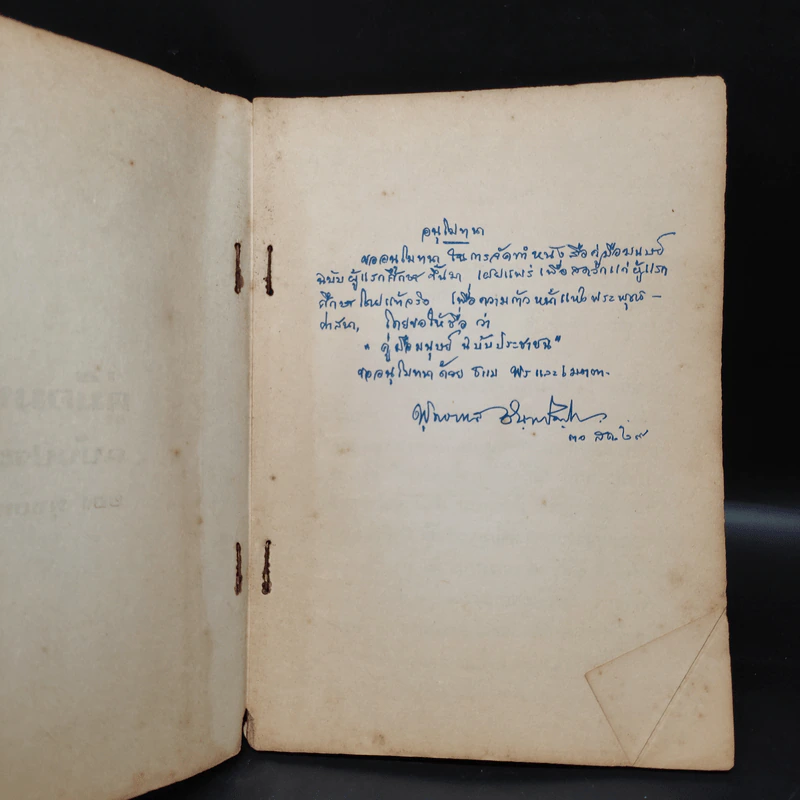 อนุโมทนา
ขออนุโมทนา ในการจัดทำหนังสือคู่มือมนุษย์
ฉบับผู้แรกศึกษา ขึ้นมา เผยแพร่ เพื่อสะดวกแก่ผู้แรก
ศึกษาโดยแท้จริง เพื่อความก้าวหน้าแห่งพระพุทธ-
ศาสนา, โดยขอให้ชื่อ ว่า
"คู่มือมนุษย์ ฉบับประชาชน"
ขออนุโมทนาด้วย ธรรม พร และเมตตา.
พุทธทาส อินฺทปญฺโญ.
๓๐ สค. ๒๙